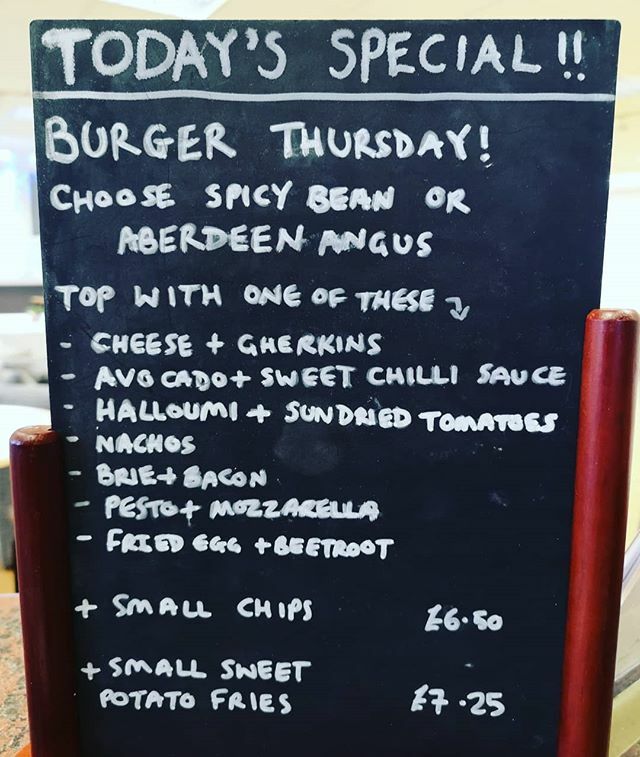 TODAY'S SPECIAL!!
BURGER THURSDAY!
CHOOSE SPICY BEAN OR
ABERDEEN ANGUS
TOP WITH ONE OF THESE ↴
- CHEESE + GHERKINS
- AVOCADO + SWEET CHILLI SAUCE
- HALLOUMI + SUNDRIED TOMATOES
- NACHOS
- BRIE + BACON
- PESTO + MOZZARELLA
- FRIED EGG + BEETROOT
+ SMALL CHIPS £6.50
+ SMALL SWEET
POTATO FRIES £7.25